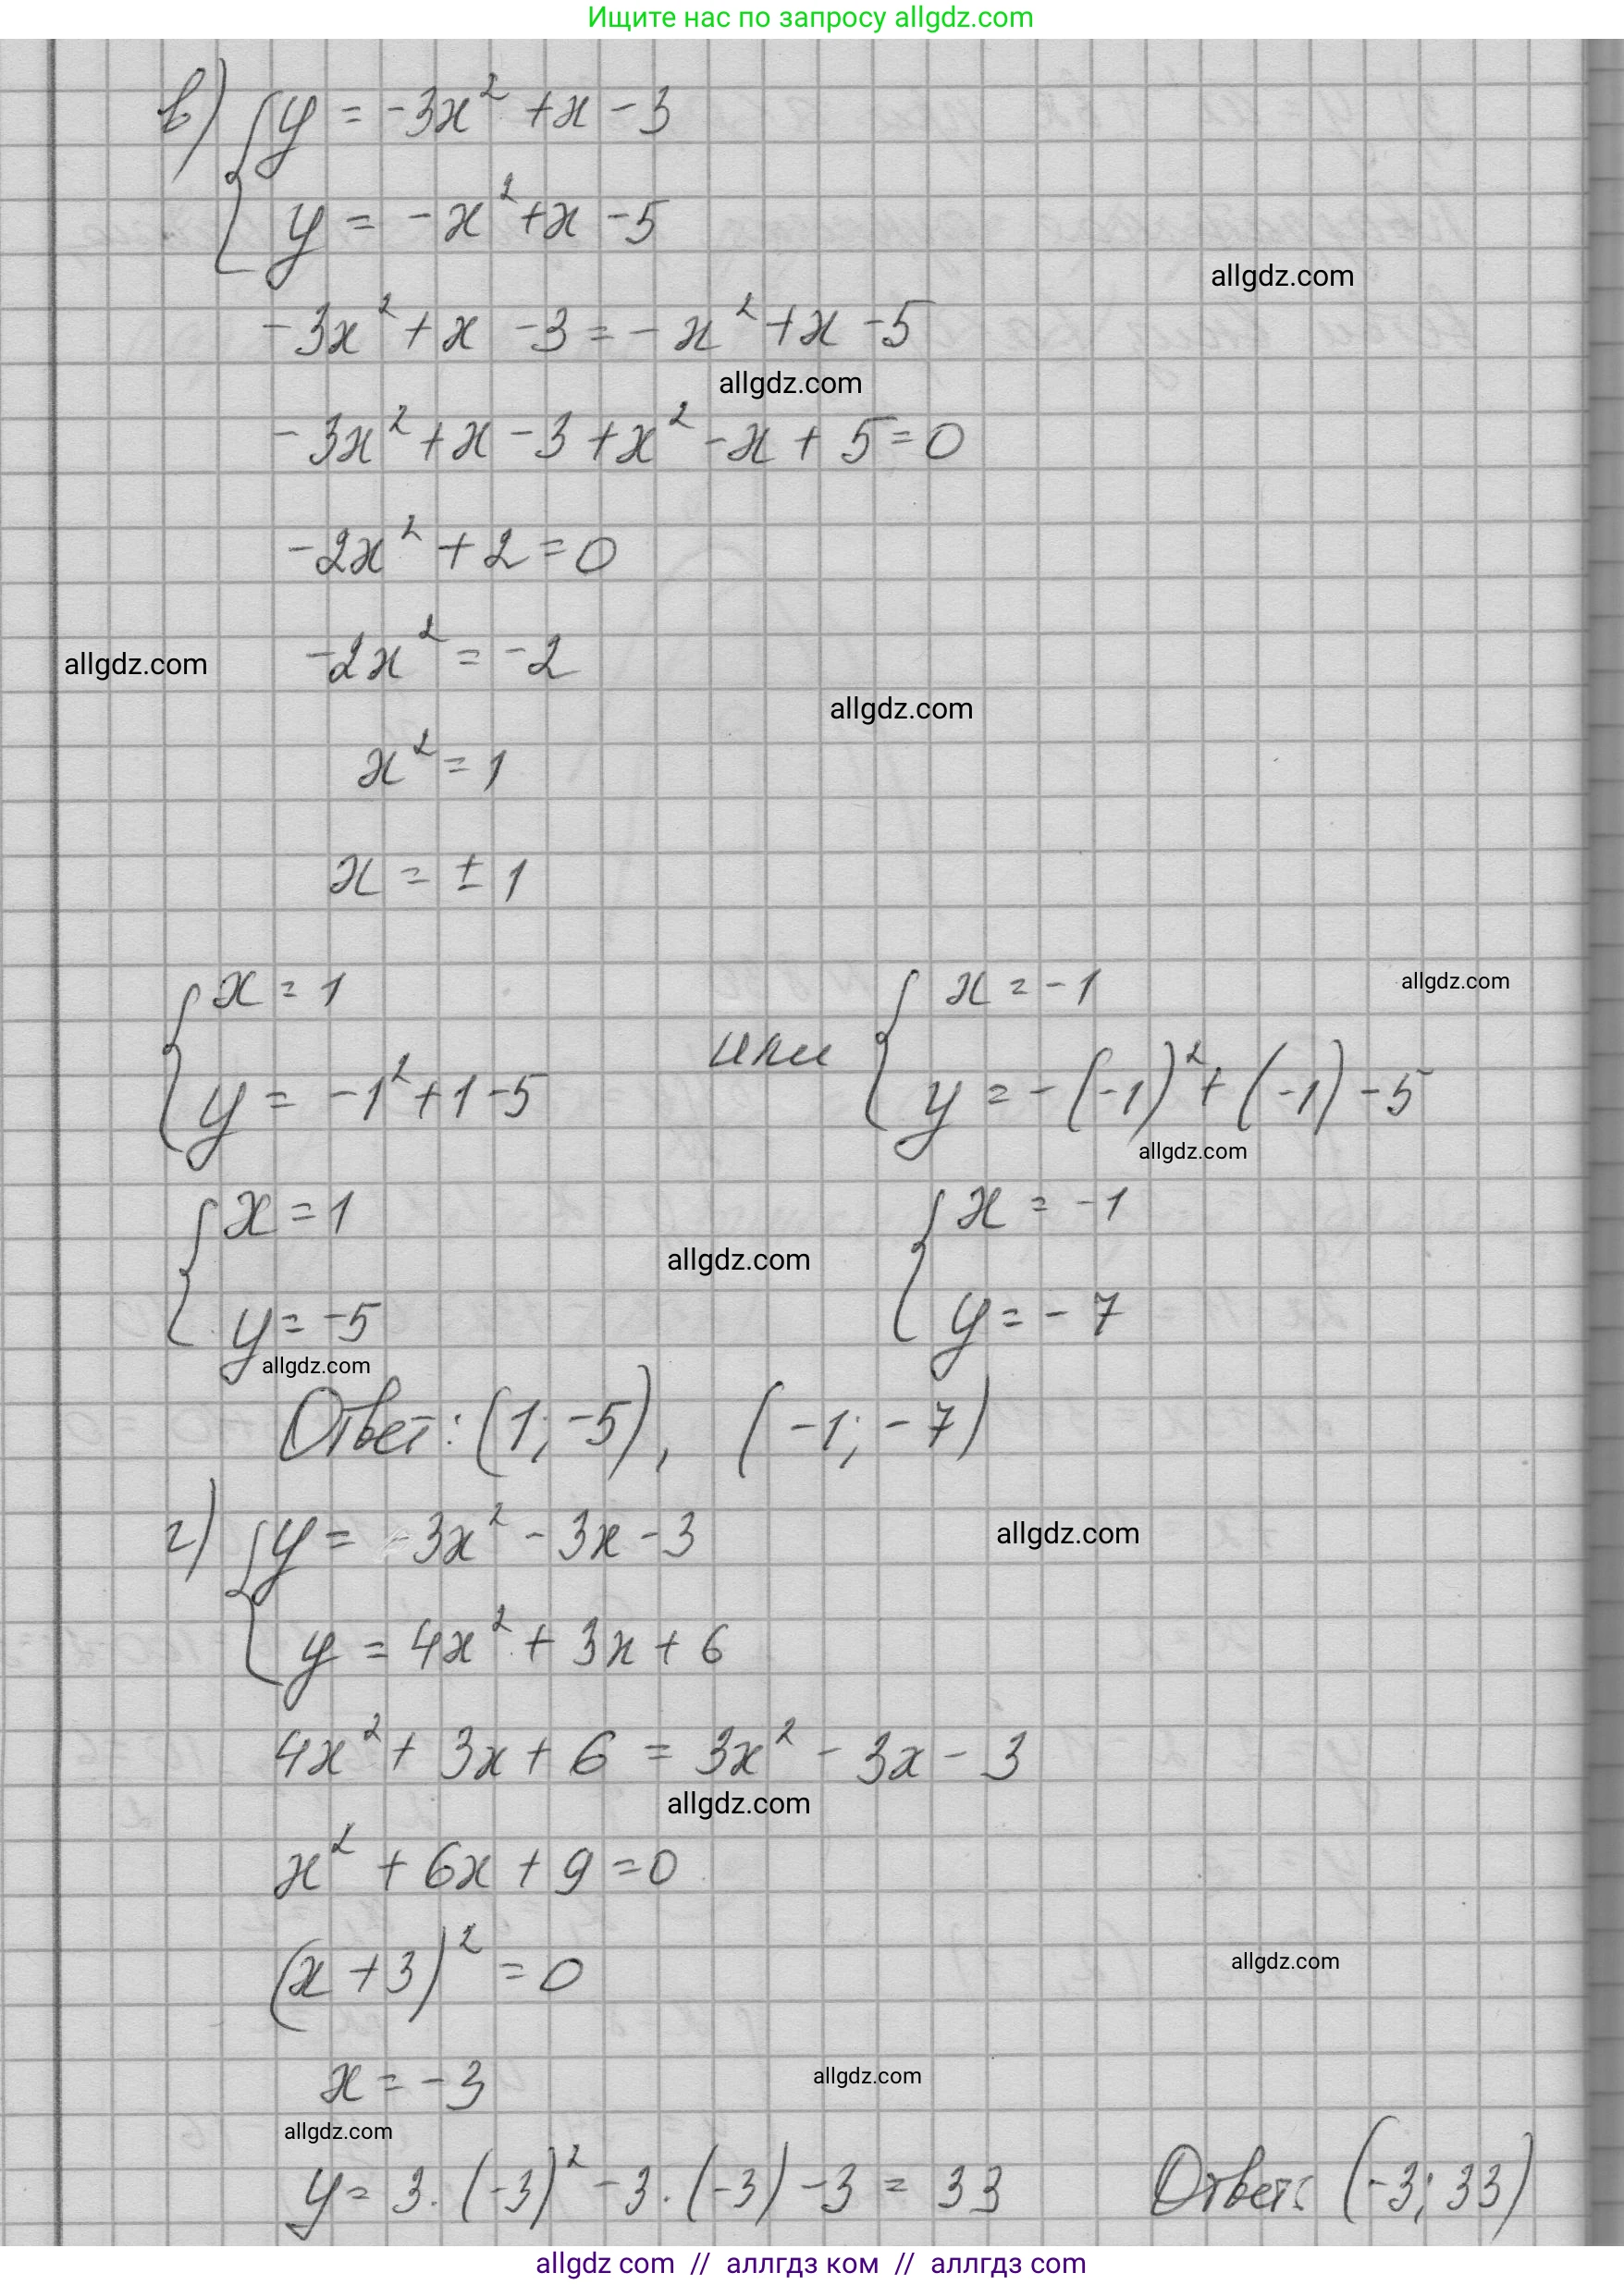 Ищите нас по запросу allgdz.com
в) { y = -3x² + x - 3
y = -x² + x - 5
allgdz.com
-3x² + x - 3 = -x² + x - 5
allgdz.com
-3x² + x - 3 + x² - x + 5 = 0
-2x² + 2 = 0
allgdz.com
-2x² = -2
allgdz.com
x² = 1
x = ± 1
{ x = 1 { x = -1 allgdz.com
y = -1² + 1 - 5 или y = -(-1)² + (-1) - 5
allgdz.com
{ x = 1 { x = -1
allgdz.com
y = -5 y = -7
allgdz.com
Ответ: (1; -5), (-1; -7)
г) { y = 3x² - 3x - 3 allgdz.com
y = 4x² + 3x + 6
4x² + 3x + 6 = 3x² - 3x - 3
allgdz.com
x² + 6x + 9 = 0
(x + 3)² = 0
allgdz.com
x = -3
allgdz.com
allgdz.com
y = 3 · (-3)² - 3 · (-3) - 3 = 33 Ответ: (-3; 33)
allgdz com // аллгдз ком // аллгдз com